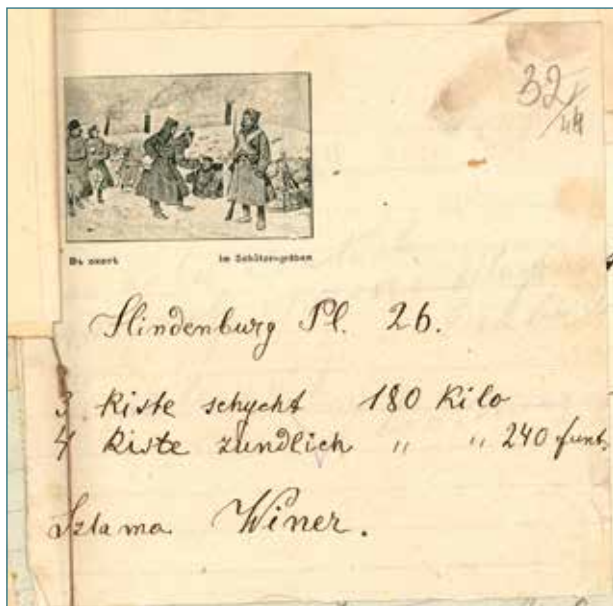 32/44
Въ окопѣ Im Schützengräben
Hindenburg Pl. 26.
3 Kiste schycht 180 Kilo
4 Kiste zundlich " " 240 funt.
Szlama Winer.